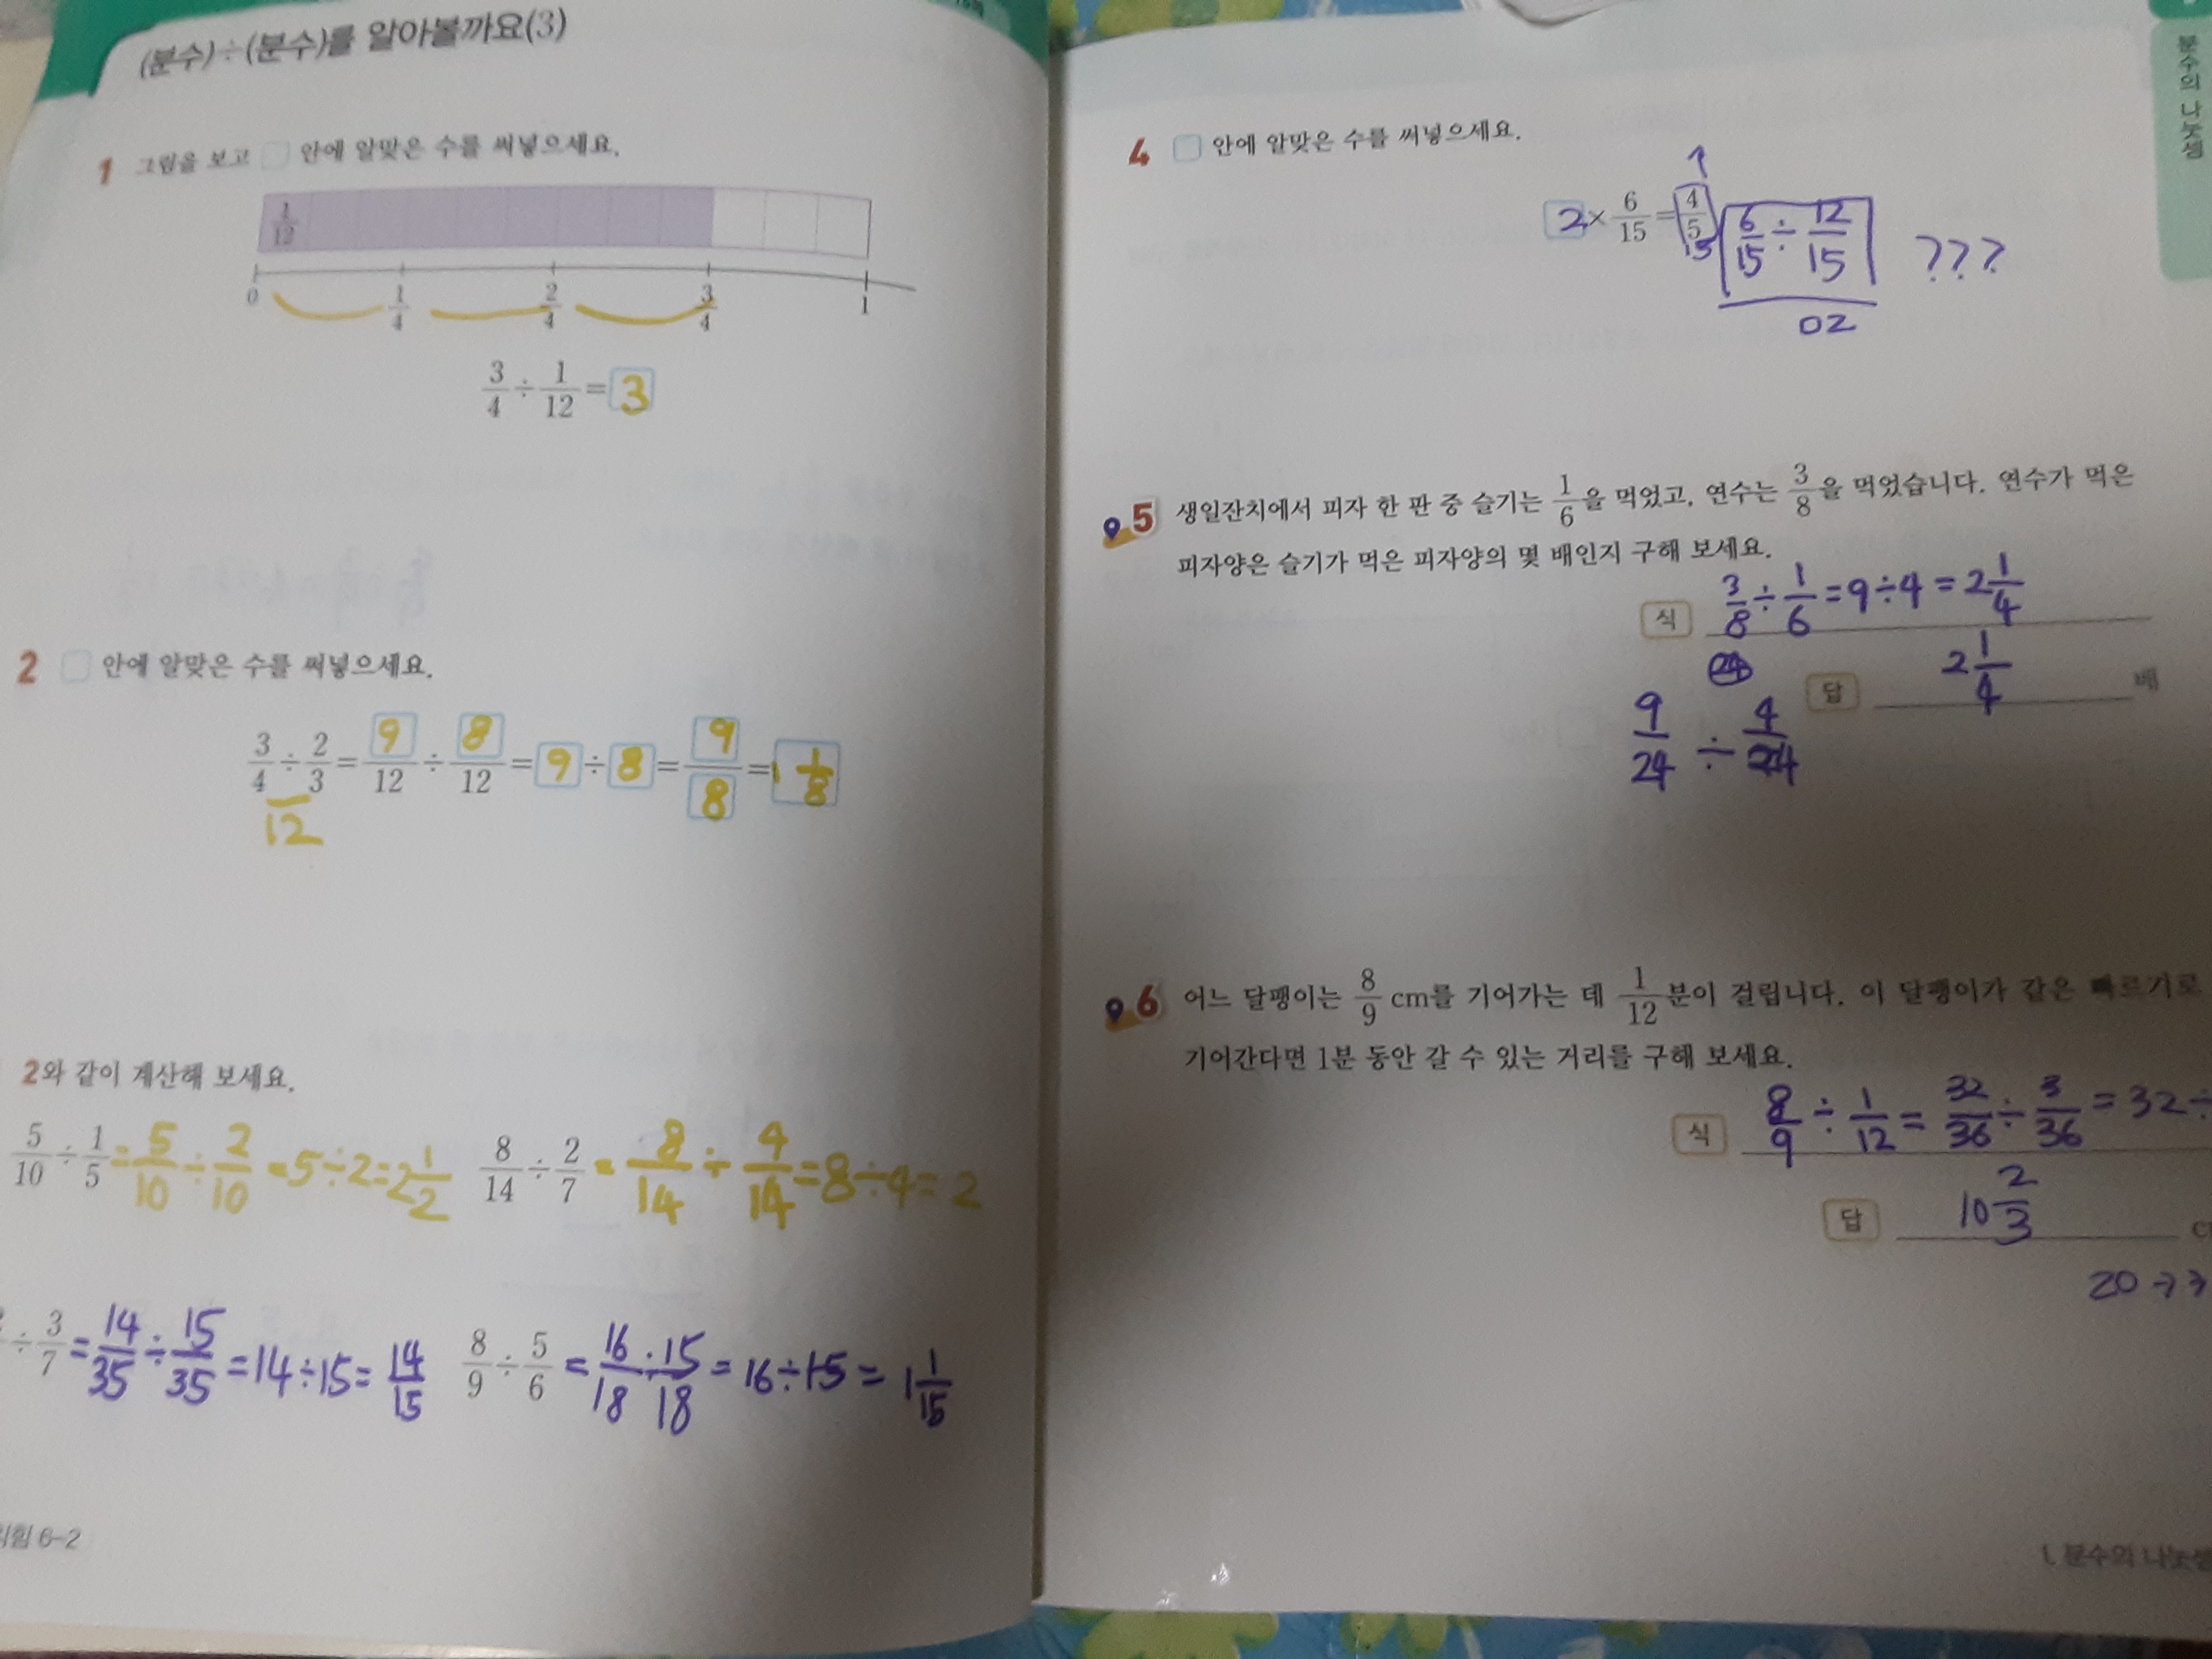 (분수)÷(분수)를 알아볼까요(3)
1 그림을 보고 □ 안에 알맞은 수를 써넣으세요.
1/12
0 1/4 2/4 3/4 1
3/4 ÷ 1/12 = 3
2 □ 안에 알맞은 수를 써넣으세요.
3/4 ÷ 2/3 = 9/12 ÷ 8/12 = 9 ÷ 8 = 9/8 = 1 1/8
12
2와 같이 계산해 보세요.
5/10 ÷ 1/5 = 5/10 ÷ 2/10 = 5÷2 = 2 1/2
8/14 ÷ 2/7 = 8/14 ÷ 4/14 = 8÷4 = 2
÷ 3/7 = 14/35 ÷ 15/35 = 14÷15 = 14/15
8/9 ÷ 5/6 = 16/18 ÷ 15/18 = 16÷15 = 1 1/15
6-2
분수의 나눗셈
4 □ 안에 알맞은 수를 써넣으세요.
2 × 6/15 = 4/5
15
6/15 ÷ 12/15 ???
5 생일잔치에서 피자 한 판 중 슬기는 1/6을 먹었고, 연수는 3/8을 먹었습니다. 연수가 먹은
피자양은 슬기가 먹은 피자양의 몇 배인지 구해 보세요.
식 3/8 ÷ 1/6 = 9÷4 = 2 1/4
답 2 1/4 배
9/24 ÷ 4/24
6 어느 달팽이는 8/9 cm를 기어가는 데 1/12분이 걸립니다. 이 달팽이가 같은 빠르기로
기어간다면 1분 동안 갈 수 있는 거리를 구해 보세요.
식 8/9 ÷ 1/12 = 32/36 ÷ 3/36 = 32÷
답 10 2/3
1. 분수의 나눗셈